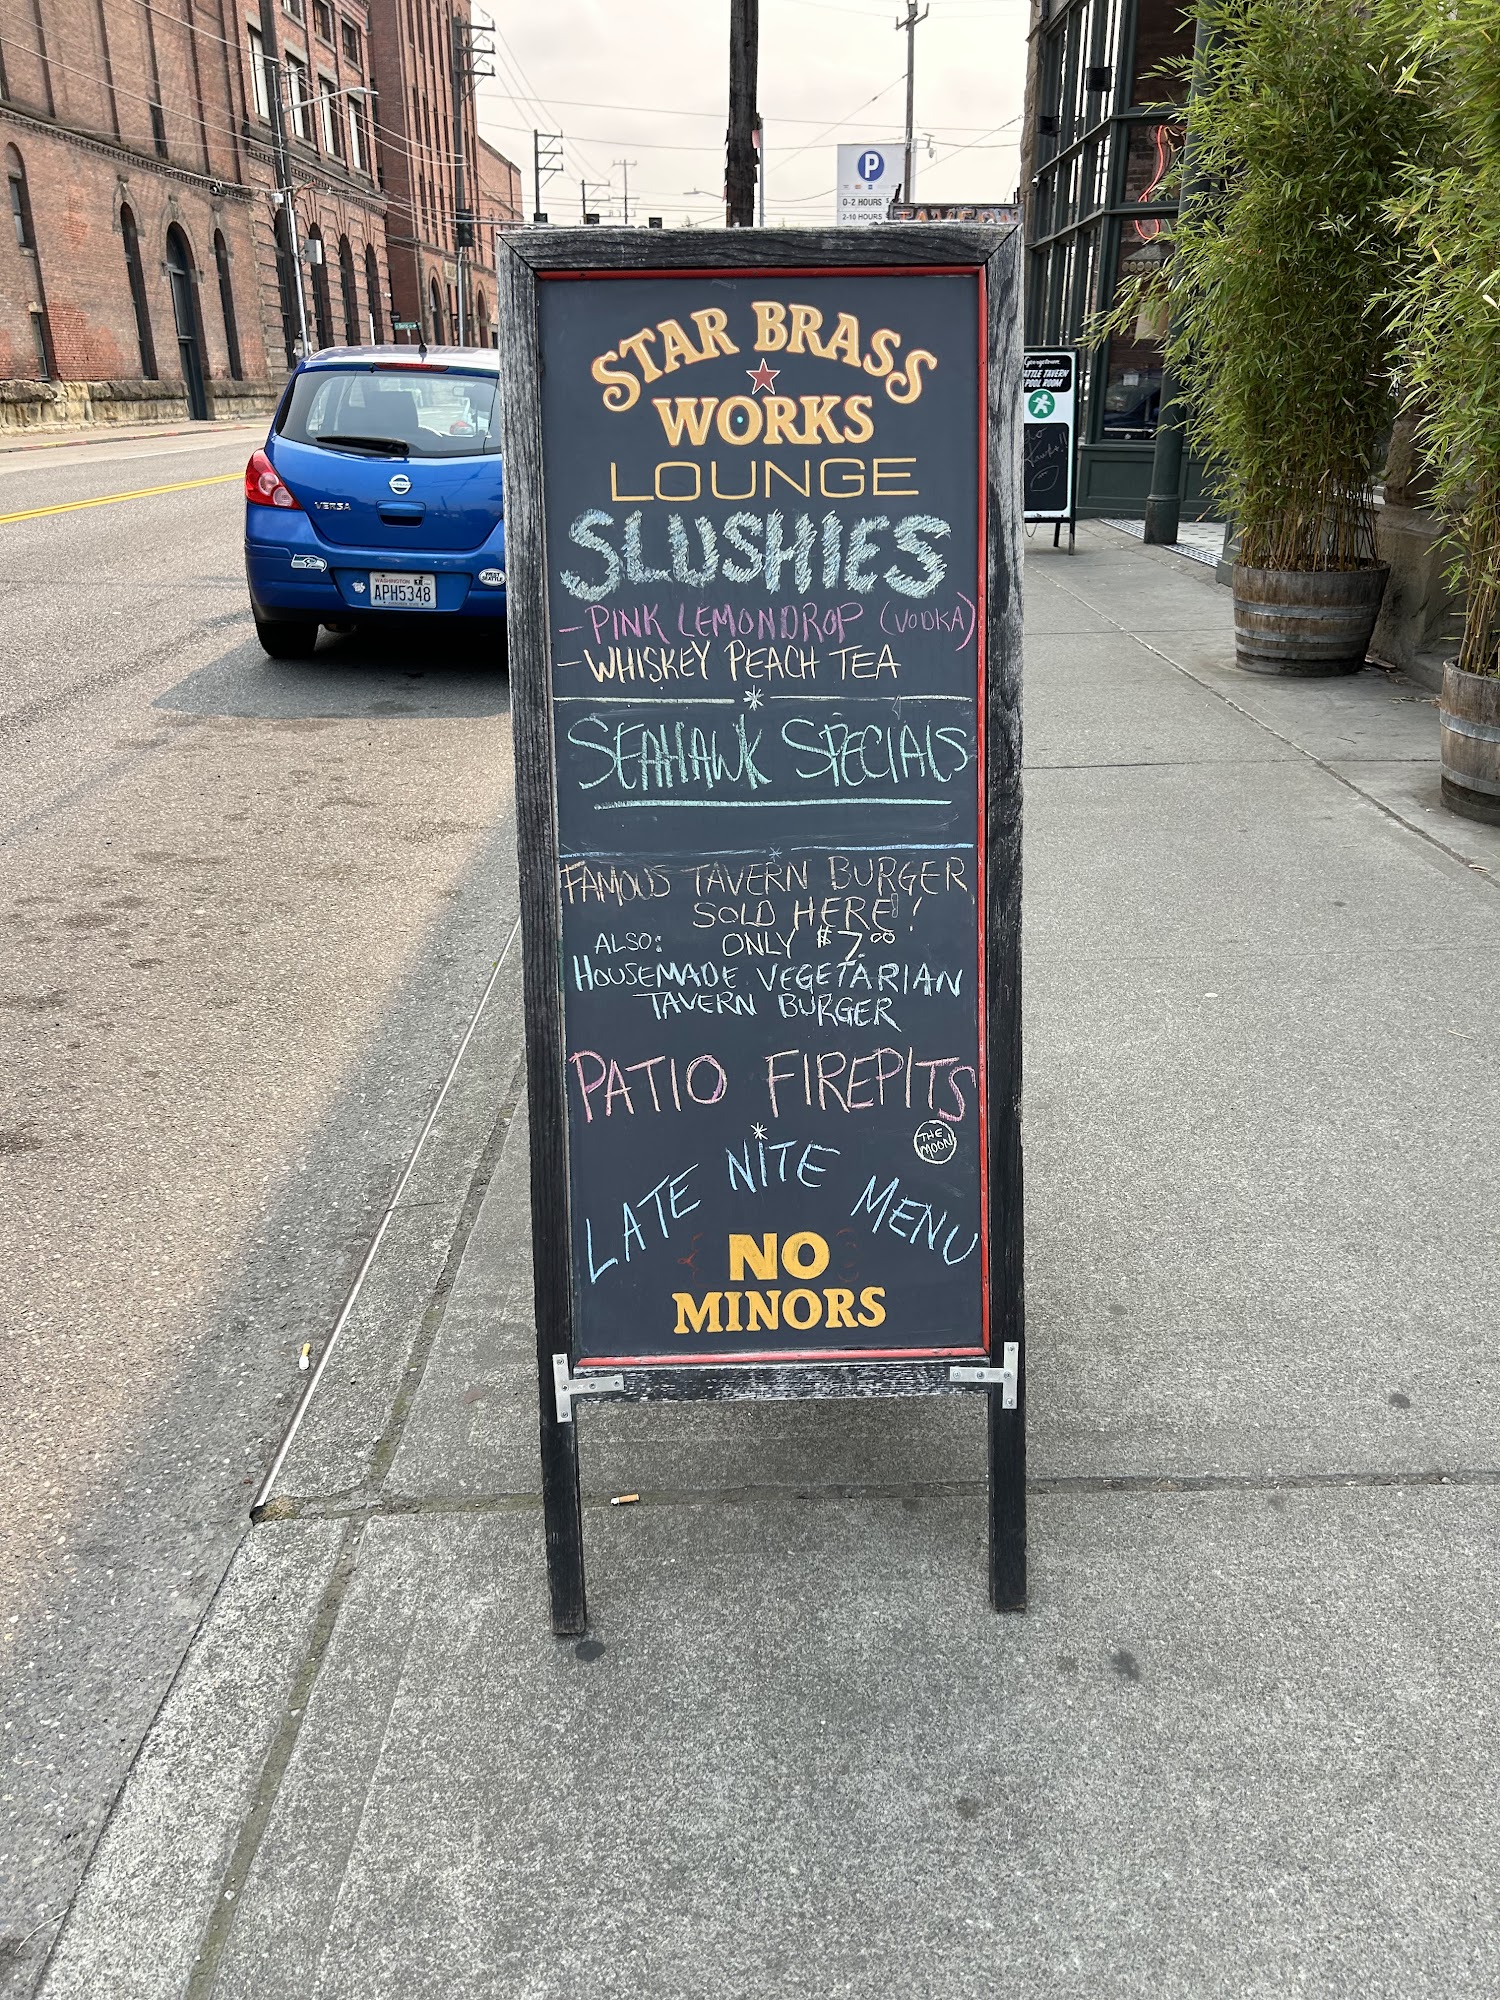 STAR BRASS
WORKS
LOUNGE
SLUSHIES
- PINK LEMONDROP (VODKA)
- WHISKEY PEACH TEA
SEAHAWK SPECIALS
FAMOUS TAVERN BURGER
SOLD HERE!
ALSO: ONLY $7.00
HOUSEMADE VEGETARIAN
TAVERN BURGER
PATIO FIREPITS
THE
MOON
LATE NITE MENU
NO
MINORS
VERSA
WASHINGTON
APH5348
WEST
SEATTLE
P
0-2 HOURS
2-10 HOURS
TAVERN
Georgetown
TLE TAVERN
POOL ROOM